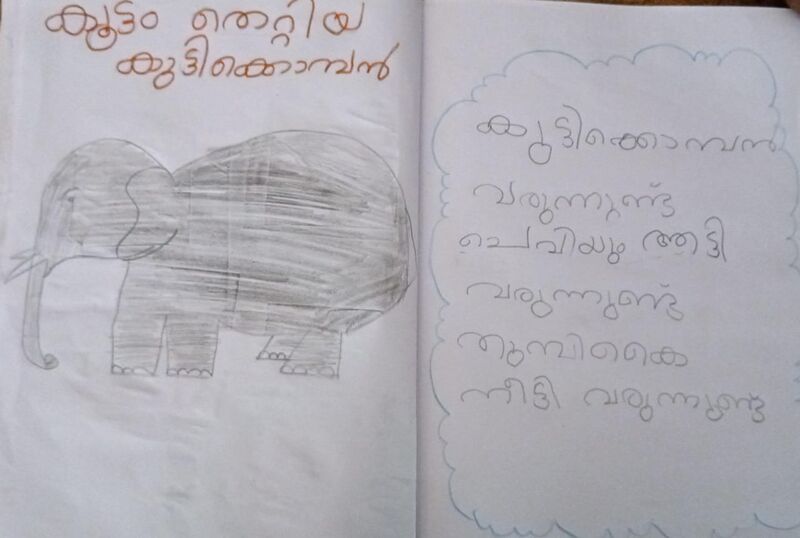 കൂട്ടം തെറ്റിയ
കുട്ടിക്കൊമ്പൻ
കുട്ടിക്കൊമ്പൻ
വരുന്നുണ്ട്
ചെവിയും ആട്ടി
വരുന്നുണ്ട്
തുമ്പികൈ
നീട്ടി വരുന്നുണ്ട്